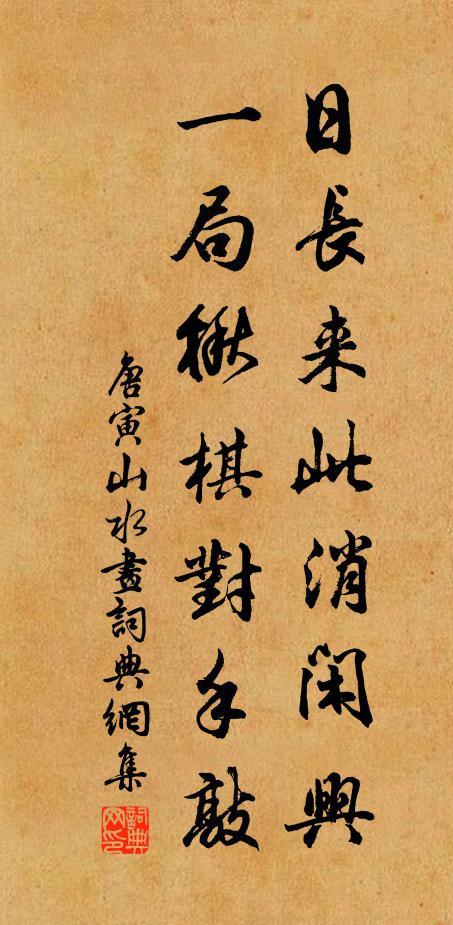 日長来此消閑興
一局楸棋對手敲
唐寅山水畫詞典網集
詞典网印